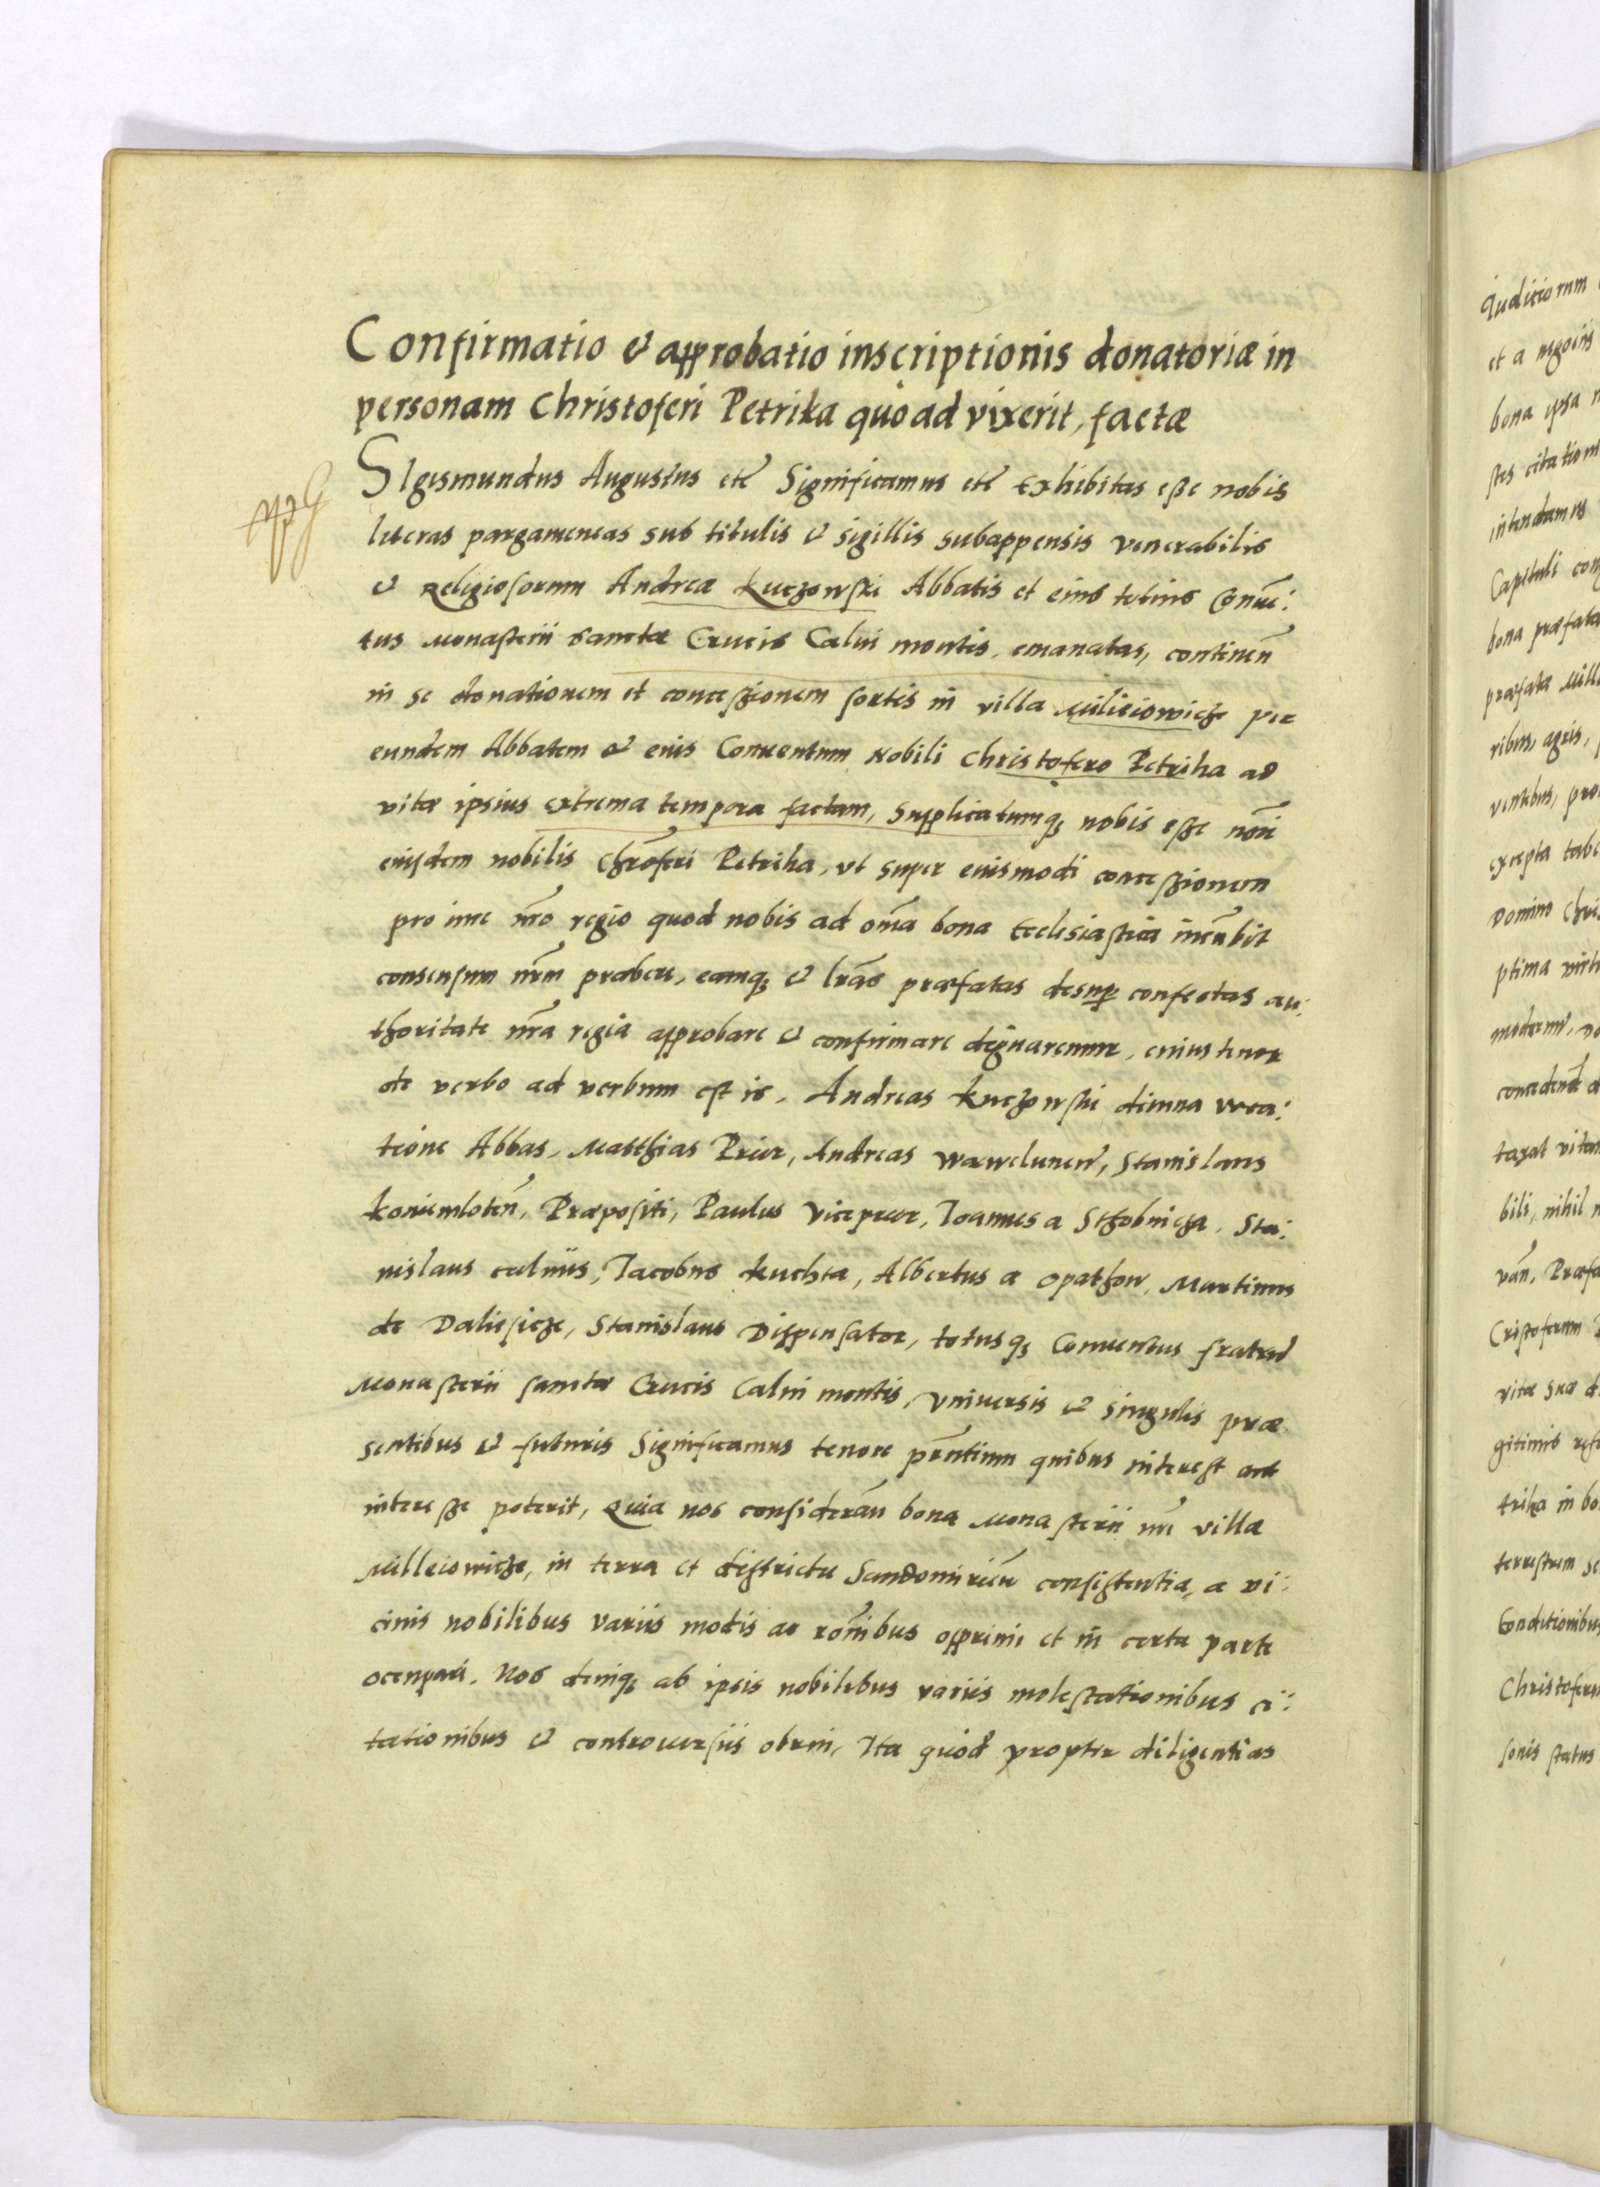 Confirmatio & approbatio inscriptionis donatoriæ in
personam Christoferi Petrika quoad vixerit, factæ
SIgismundus Augustus etc̃ Significamus etc̃ Exhibitas esse nobis
literas pargameneas sub titulis & sigillis subappensis venerabilis
& Religiosorum Andreæ Kuczowski Abbatis et eius totius Conuẽ:
tus Monasterii sanctæ Crucis Calui montis, emanatas, continen̄
in se donationem et concessionem sortis in villa Mileiowicze per
eundem Abbatem & eius Conuentum Nobili Christofero Petrika ad
vitæ ipsius extrema tempora factam, Supplicatumq; nobis esse noĩe
eiusdem nobilis Chrõferi Petrika, vt super eiusmodi concessionem
pro iure nr̃o regio quod nobis ad om̃a bona Ecclesiastica incũbit
consensum nr̃m præbere, eamq; & lr̃as præfatas desup confectas au:
thoritate nr̃a regia approbare & confirmare dignaremur, cuius tenor
de verbo ad verbum est is. Andreas Kuczowski diuina voca:
tione Abbas, Matthias Prior, Andreas Wawelnen̄, Stanislaus
Koniemloten̄, Præpositi, Paulus Viceprior, Ioannes a Sthobnicza, Sta:
nislaus calinus, Iacobus Kuchta, Albertus a Opathow, Martinus
de Daliesicze, Stanislaus Dispensator, totusq; Conuentus fratrũ
Monasterii sanctæ Crucis Calui montis, Vniuersis & singulis præ
sentibus & futuris Significamus tenore pr̃ntium quibus interest aut
interesse poterit, Quia nos considerañ bona Monasterii nr̃i villæ
Milleiowicze, in terra et districtu Sandomirieñ consistentia, a vi:
cinis nobilibus variis modis ac rõnibus opprimi et in certa parte
occupari. Nos deniq; ab ipsis nobilibus variis molestationibus ci:
tationibus & controuersiis obrui, Ita quod propter diligentias
Iuditiorum
et a negociis
bona ipsa
stes citation
intendamus
Capituli con
bona præfata
præfata Mill
ribus, agris,
ventibus, pro
excepta tab
Domino Chri
ptima virt
modern̄,
concedend̃
taxat vitam
bili, nihil
van̄, Præfa
Cristoferum
vitæ suæ d
gitimis
trika in bo
terrestrem se
Conditionibus
Christoferu
sonis status